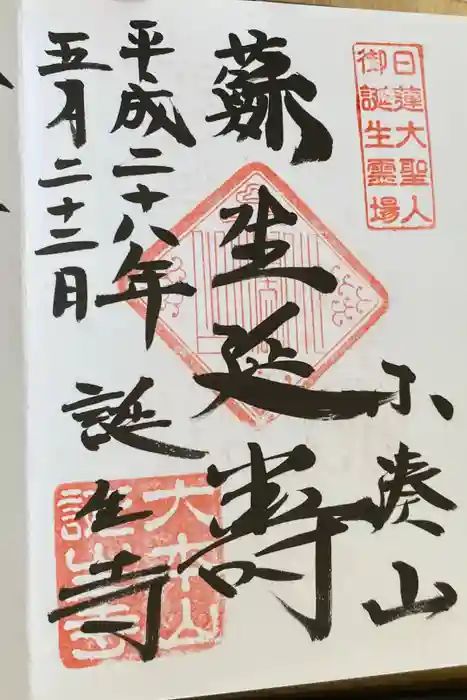 日蓮大聖人
御誕生霊場
小湊山
蘇生延壽
平成二十八年
五月二十二日
誕生寺
大本山
誕生寺